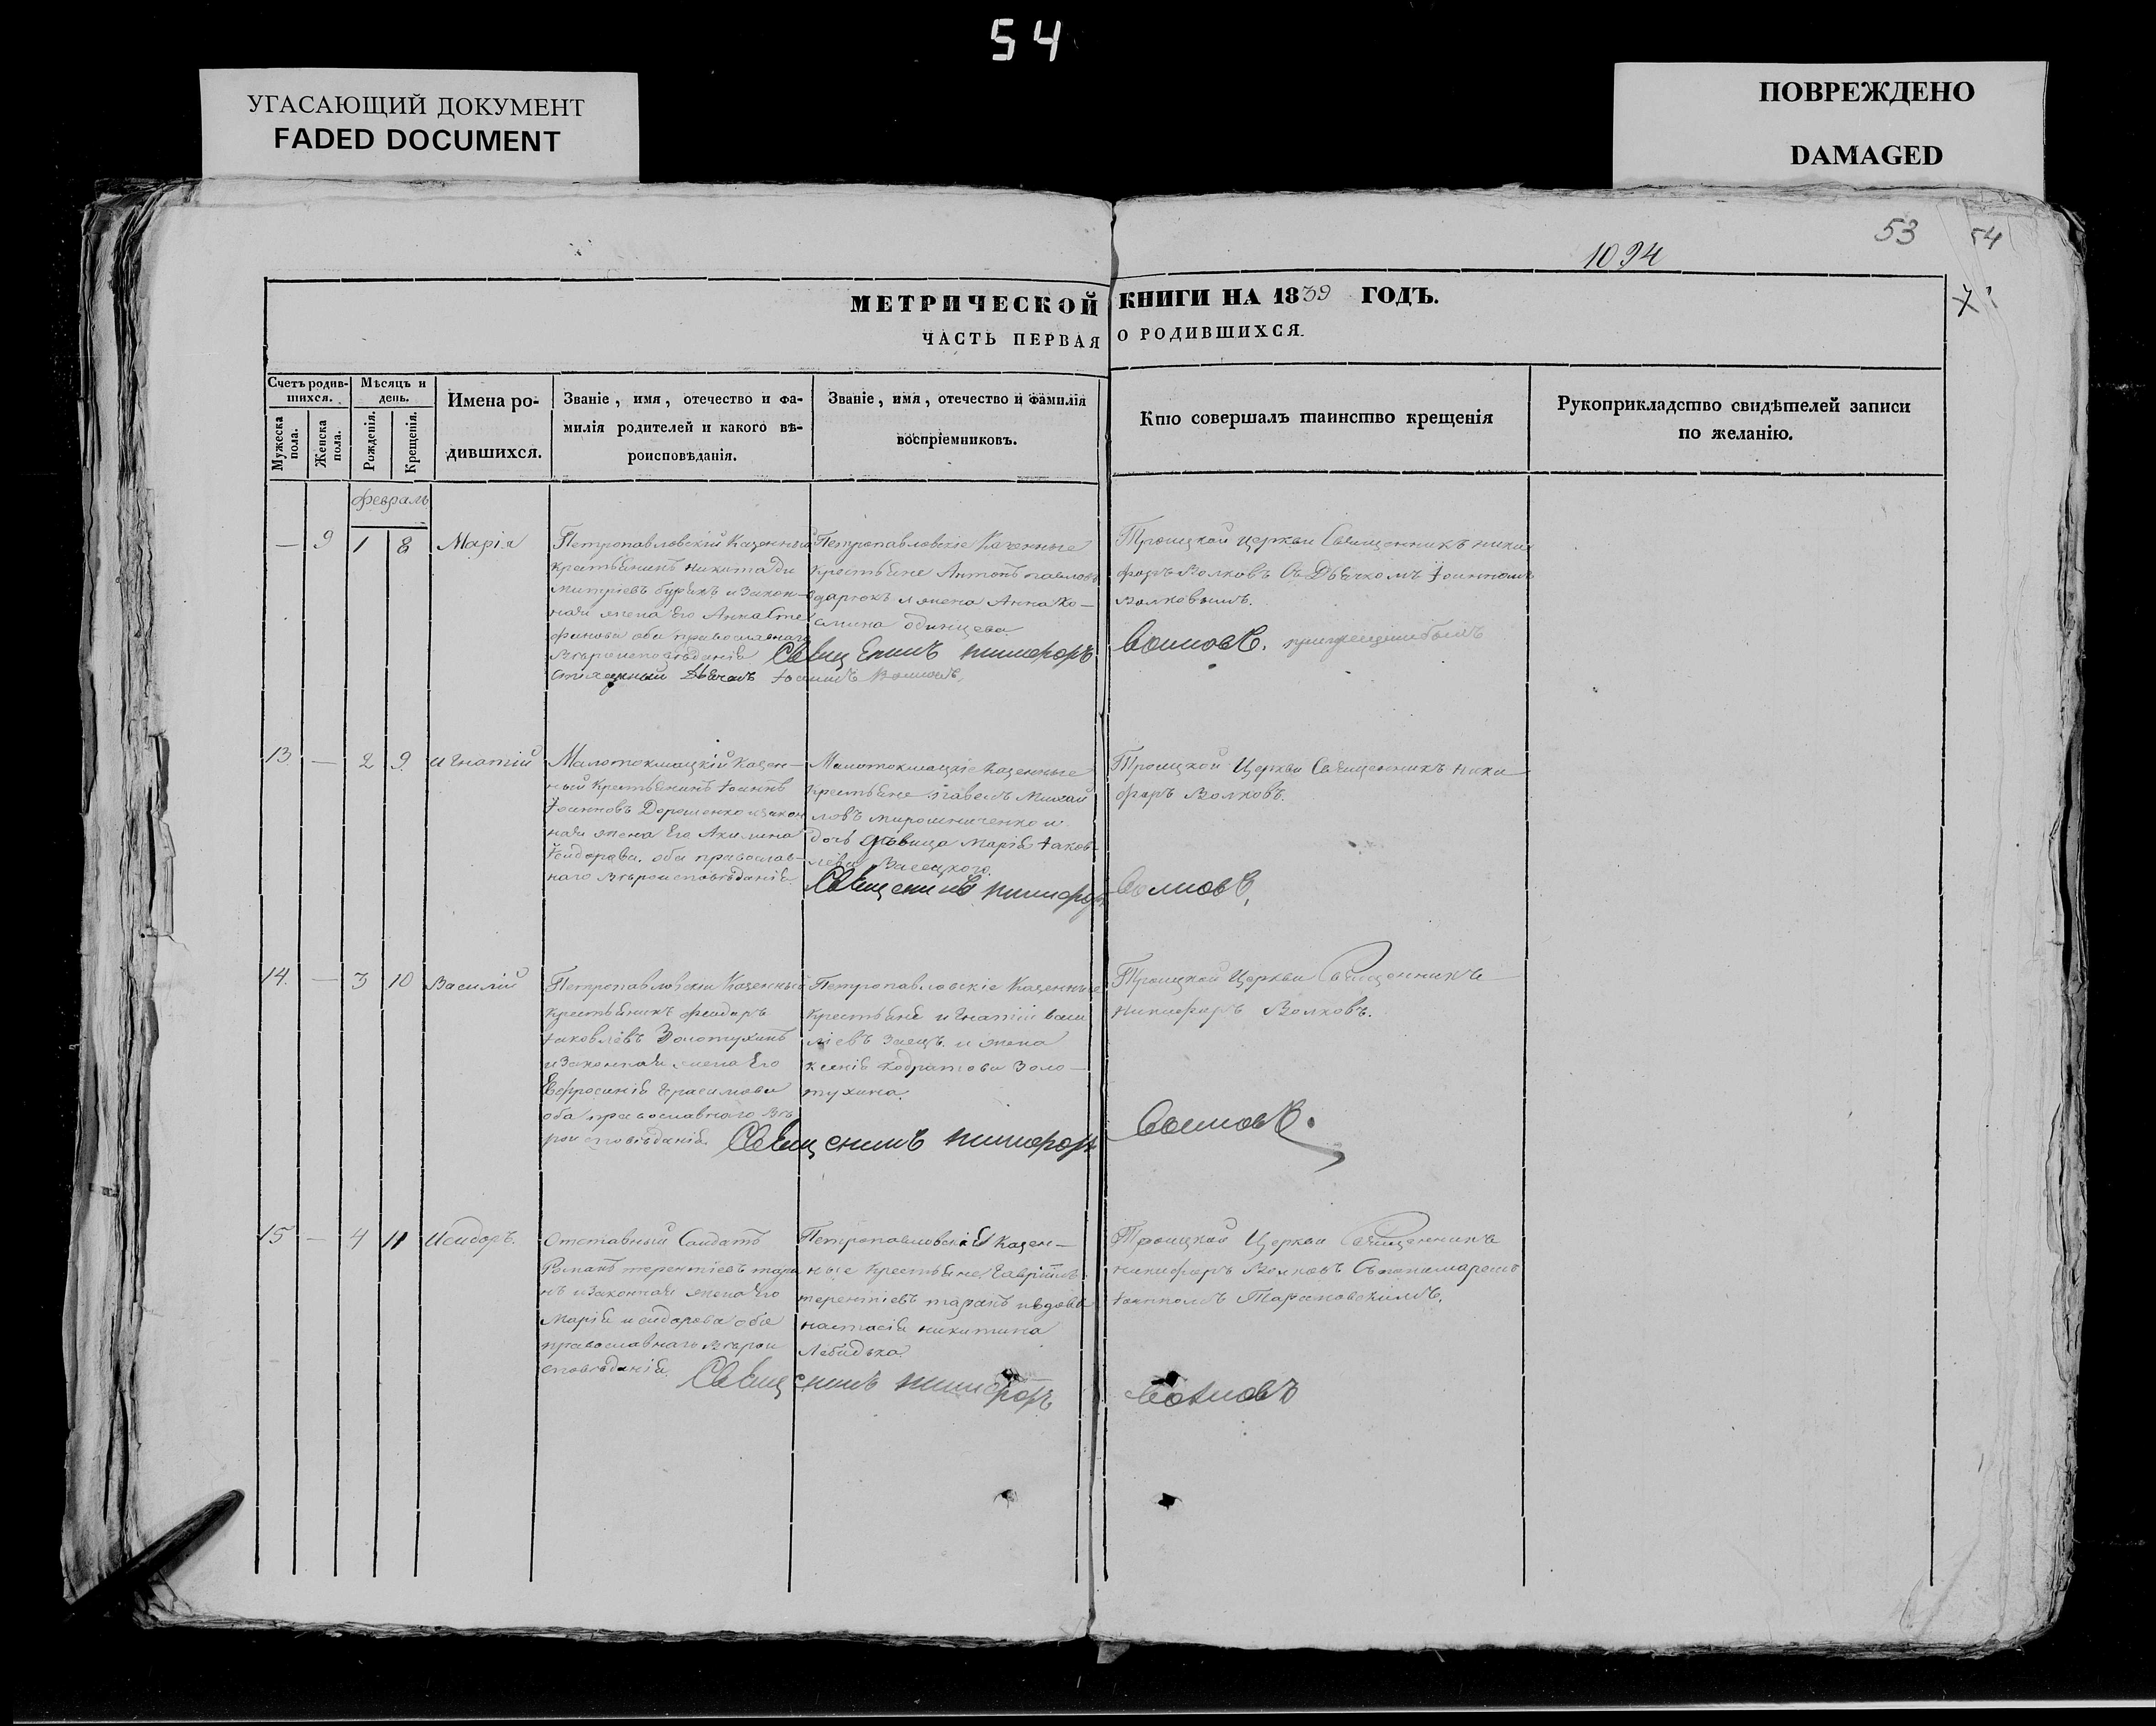 54
УГАСАЮЩИЙ ДОКУМЕНТ
FADED DOCUMENT
ПОВРЕЖДЕНО
DAMAGED
53 54
1094
МЕТРИЧЕСКОЙ КНИГИ НА 1839 ГОДЪ.
ЧАСТЬ ПЕРВАЯ О РОДИВШИХСЯ.
Счетъ родив-
шихся.
Мужеска
пола.
Женска
пола.
Мѣсяцъ и
день.
Рожденія.
Крещенія.
Имена ро-
дившихся.
Званіе, имя, отечество и фа-
милія родителей и какого вѣ-
роисповѣданія.
Званіе, имя, отечество и фамилія
воспріемниковъ.
Кто совершалъ таинство крещенія
Рукоприкладство свидѣтелей записи
по желанію.
Февраль
— 9 1 8 Марія
Петропавловскій Казенный
крестьянинъ никита ди
митріевъ бурякъ и Закон-
ная жена Его Анна Сте
фанова оба православнаго
Вѣроисповѣданія
Петропавловскіе Казенные
крестьяне Антонъ павловъ
и жена Анна Ко-
смина одинцева
Троицкой церкви Священникъ ники
форъ Волковъ Съ Дьячкомъ Іоанномъ
Волковымъ.
Священникъ никифоръ Волковъ. при крещеніи былъ
Дьячекъ Іоаннъ Волковъ,
13 — 2 9 Игнатій
Малотокмацкій Казен-
ный Крестьянинъ Іоаннъ
Іоанновъ Дорошенко и закон
ная жена Его Акилина
Ісидорова. оба православ-
наго Вѣроисповѣданія
Малотокмацкіе Казенные
крестьяне павелъ Михай
ловъ мирошниченко и
дочь дѣвица Марія Іаков-
лева
Троицкой Церкви Священникъ Ники
форъ Волковъ.
Священникъ никифоръ Волковъ,
14. — 3 10 Василій
Петропавловскій Казенный
Крестьянинъ феодоръ
Іаковлевъ Золотухинъ
и Законная жена Его
Евфросинія Герасимова
оба православнаго Вѣ
роисповѣданія
Петропавловскіе Казенные
крестьяне игнатій васи
ліевъ Заецъ и жена
ксенія кодратова Золо-
тухина.
Троицкой Церкви Священникъ
никифоръ Волковъ.
Священникъ никифоръ Волковъ.
15 — 4 11 Исидоръ.
Отставный Солдатъ
Романъ терентіевъ тара
нъ и Законная жена Его
Марія исидорова оба
православнаго Вѣрои
споведанія
Петропавловскія Казен-
ные крестьяне Гавріилъ
терентіевъ таранъ и вдова
настасія никитина
Лебидька
Троицкой Церкви Священникъ
никифоръ Волковъ Съ понамаремъ
Іоанномъ Тарановскимъ.
Священникъ никифоръ Волковъ